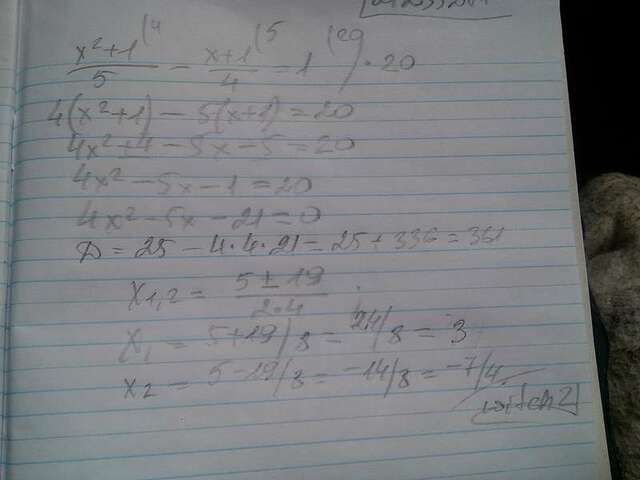 x²+1/5 (4 - x+1/4 (5 = 1 (20) · 20
4(x²+1) - 5(x+1) = 20
4x²+4 - 5x - 5 = 20
4x² - 5x - 1 = 20
4x² - 5x - 21 = 0
D = 25 - 4·4·21 = 25 + 336 = 361
x1,2 = 5±19/2·4
x1 = 5+19/8 = 24/8 = 3
x2 = 5-19/8 = -14/8 = -7/4
witch2